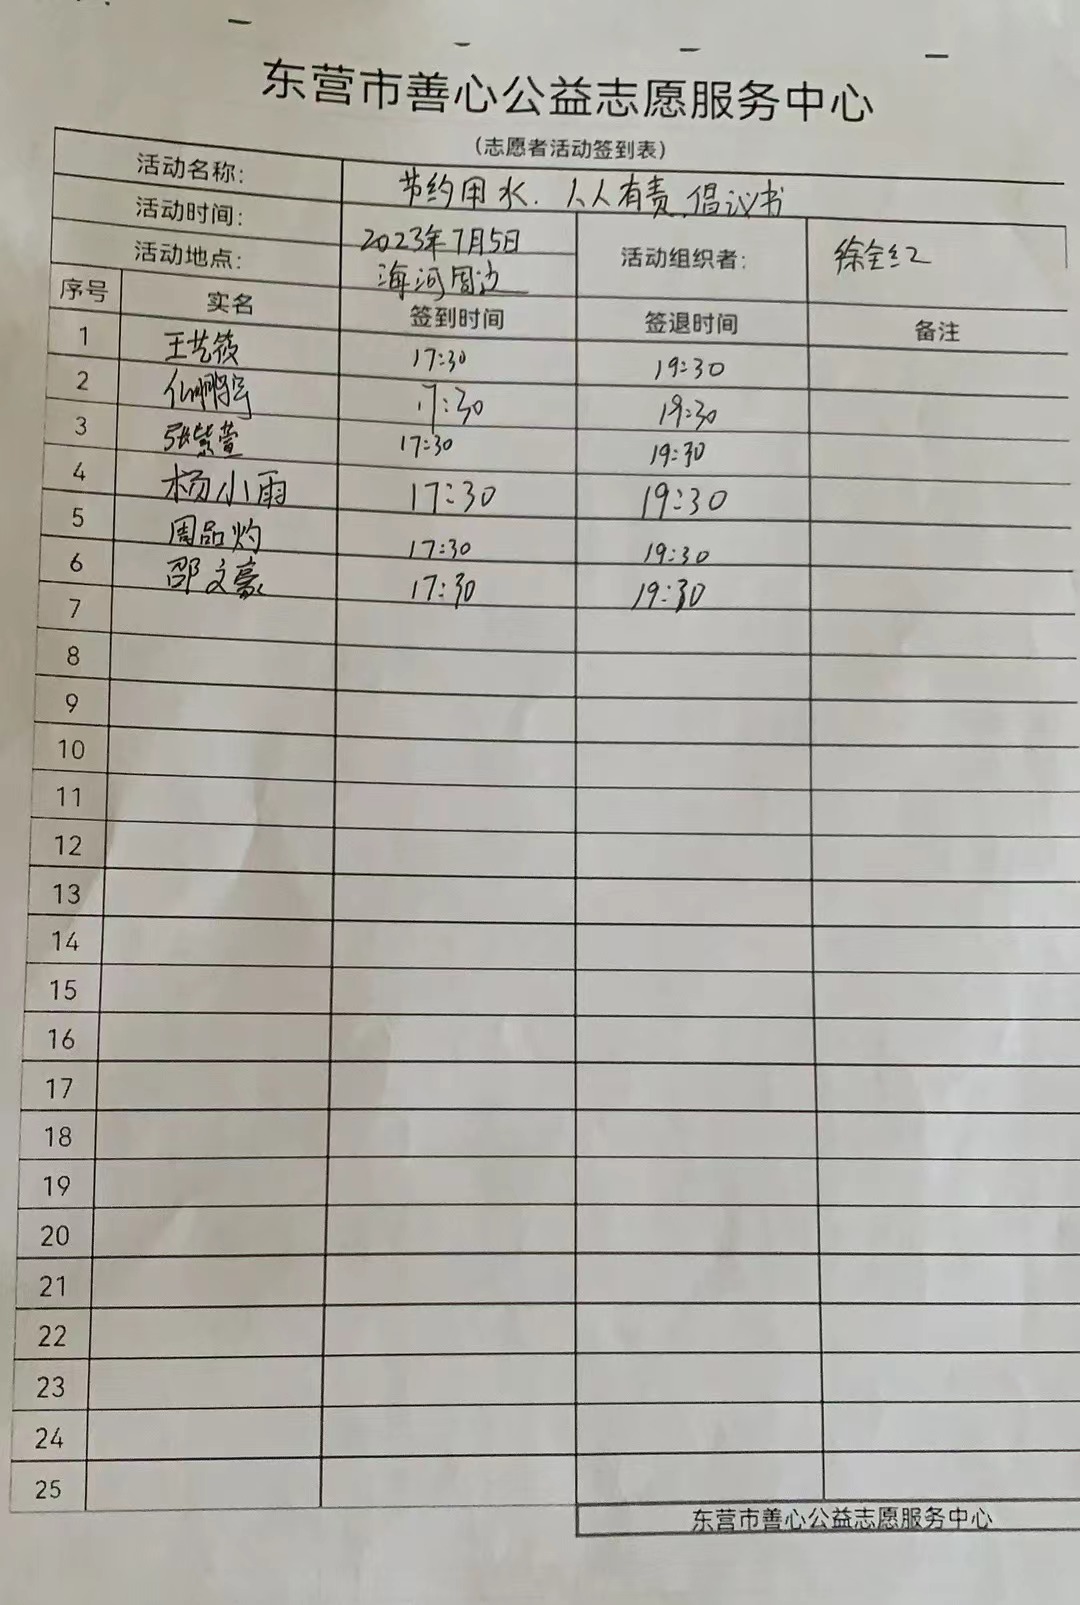 东营市善心公益志愿服务中心
(志愿者活动签到表)
活动名称: 节约用水.人人有责.倡议书
活动时间: 2023年7月5日 活动组织者: 徐全红
活动地点: 海河周边
序号 实名 签到时间 签退时间 备注
1 王艺筱 17:30 19:30
2 17:30 19:30
3 张紫萱 17:30 19:30
4 杨小雨 17:30 19:30
5 周品灼 17:30 19:30
6 邵文豪 17:30 19:30
7
8
9
10
11
12
13
14
15
16
17
18
19
20
21
22
23
24
25
东营市善心公益志愿服务中心